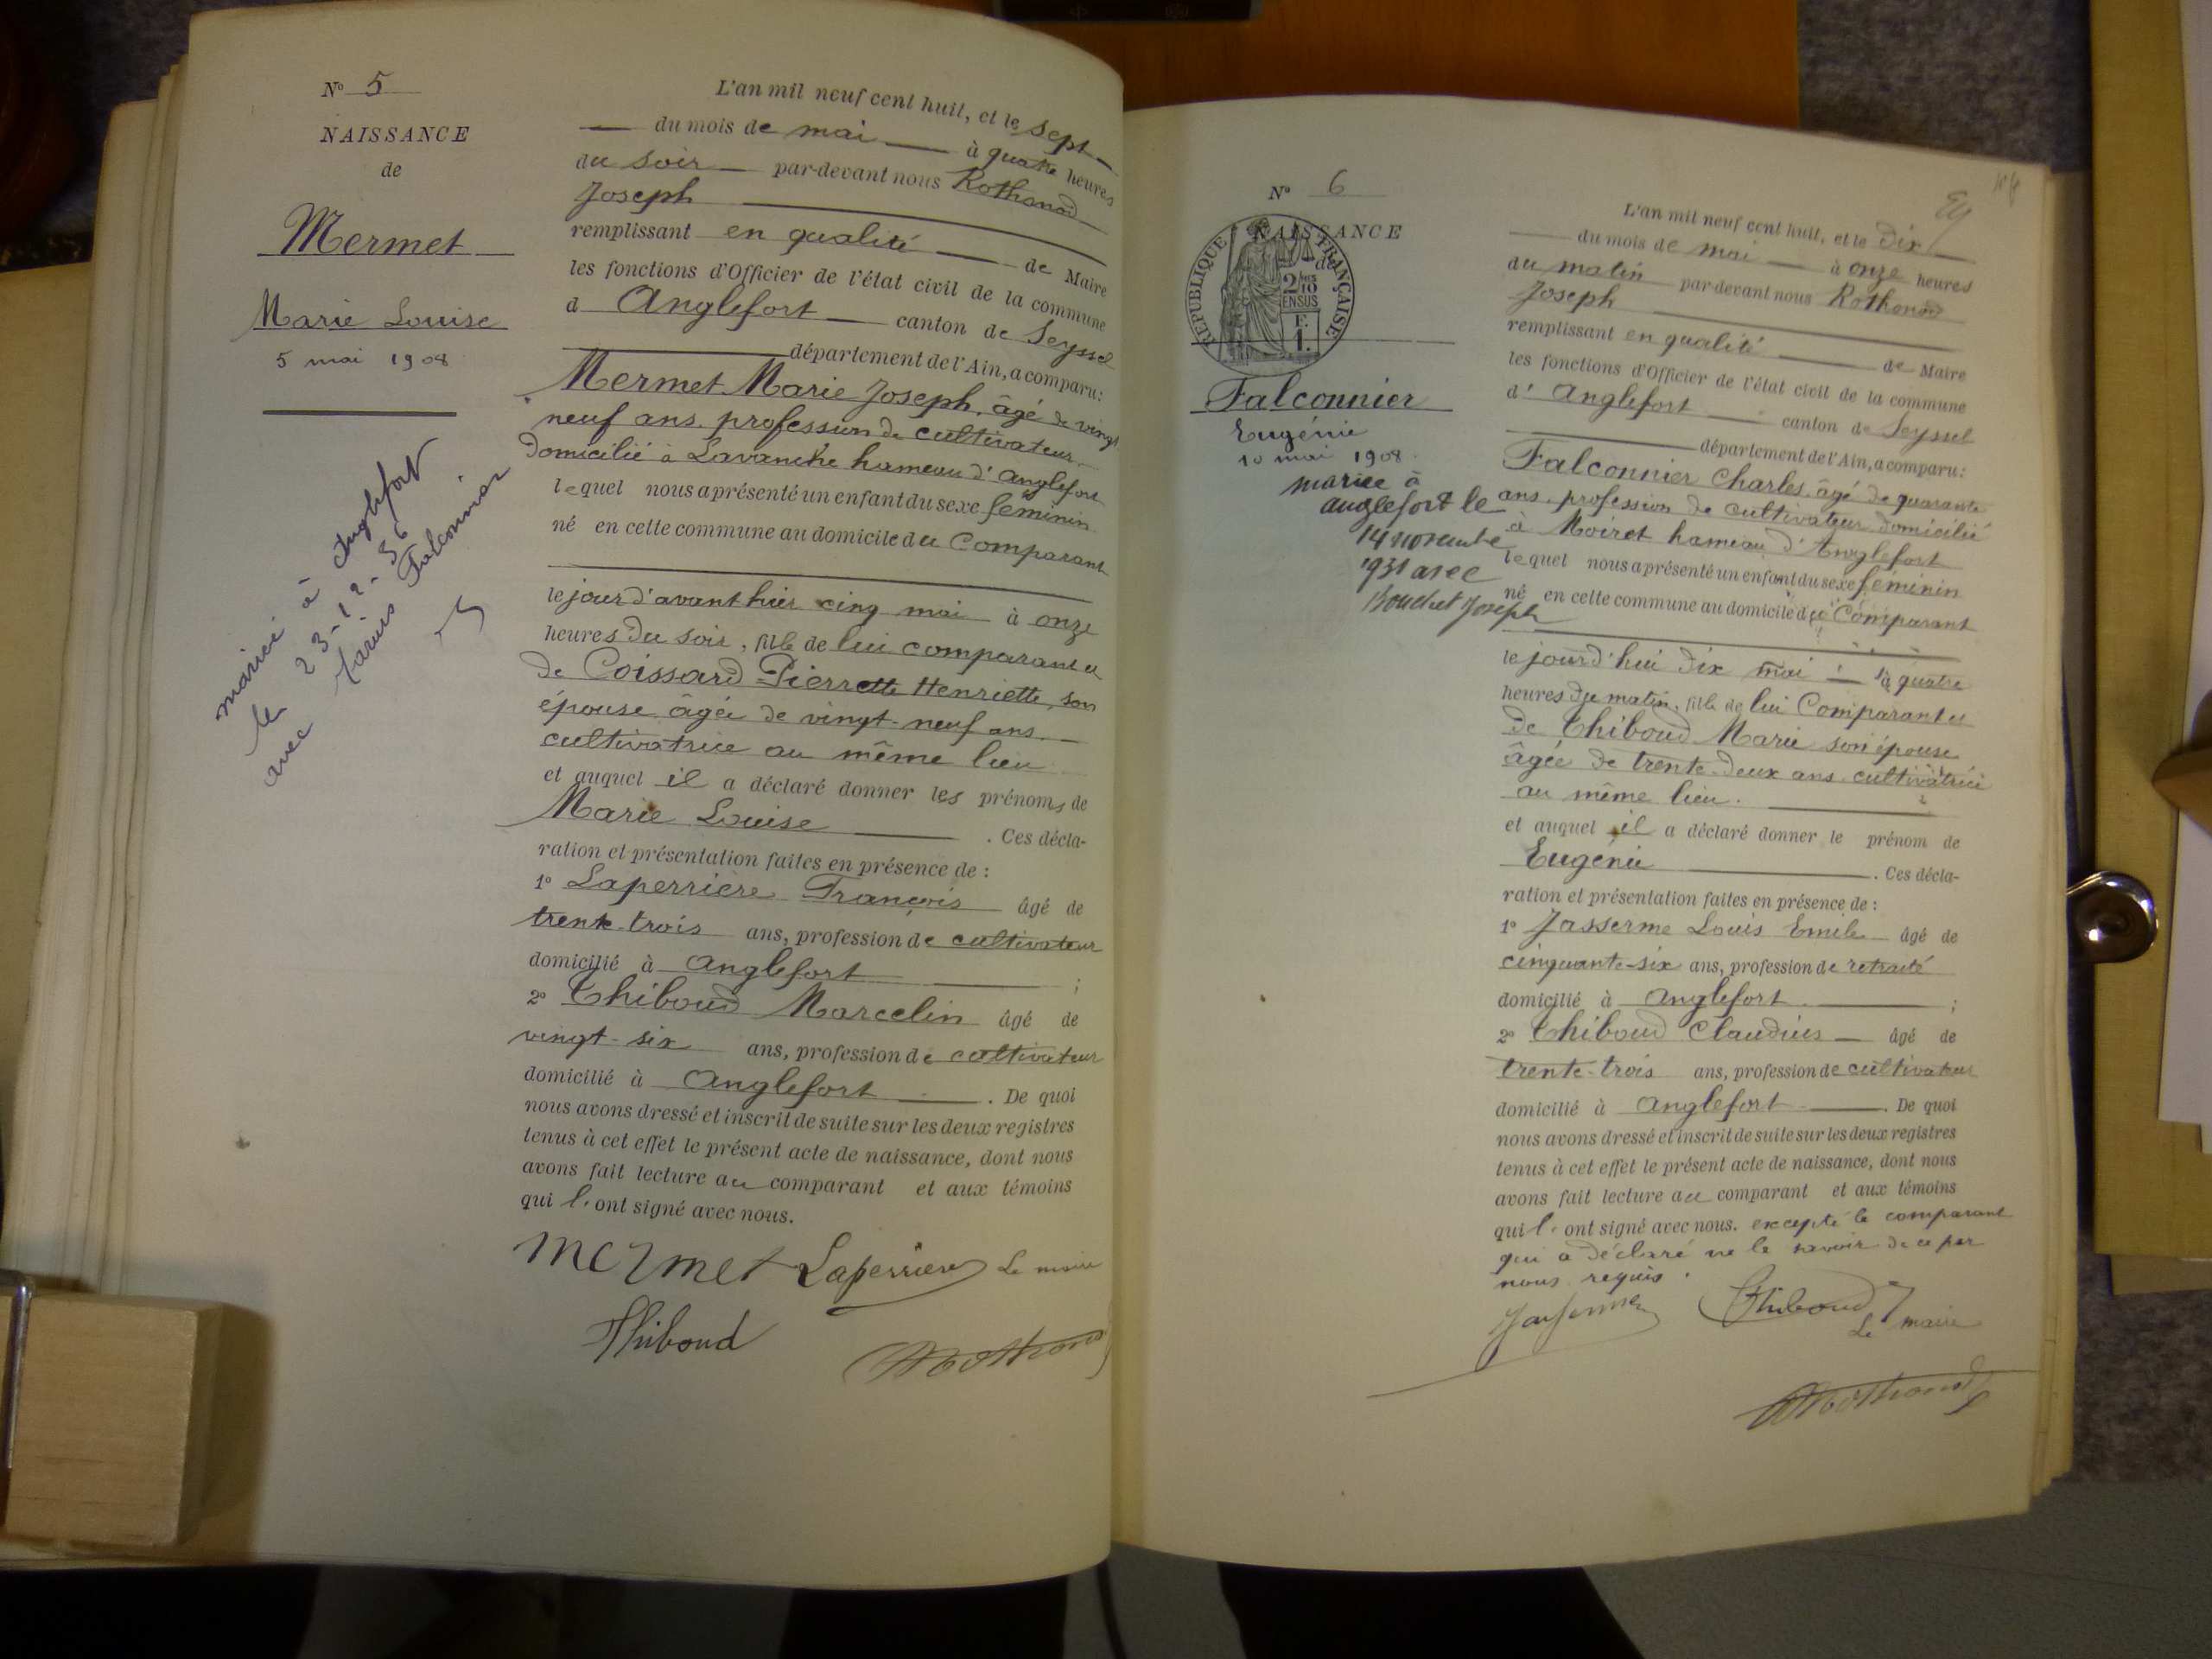 N° 5
NAISSANCE
de
Mermet
Marie Louise
5 mai 1908
mariée à Anglefort
le 23-12-36
avec Marius Falconnier
L'an mil neuf cent huit, et le sept
du mois de mai à quatre heures
du soir par-devant nous Rothonod
Joseph
remplissant en qualité de Maire
les fonctions d'Officier de l'état civil de la commune
d Anglefort canton de Seyssel
département de l'Ain, a comparu:
Mermet Marie Joseph, âgé de vingt
neuf ans, profession de cultivateur
domicilié à Lavanche hameau d'Anglefort
lequel nous a présenté un enfant du sexe féminin
né en cette commune au domicile du Comparant
le jour d'avant hier cinq mai à onze
heures du soir, fille de lui comparant et
de Coissard Pierrette Henriette, son
épouse âgée de vingt-neuf ans
cultivatrice au même lieu
et auquel il a déclaré donner les prénoms de
Marie Louise . Ces décla-
ration et présentation faites en présence de :
1° Laperrière François âgé de
trente-trois ans, profession de cultivateur
domicilié à Anglefort ;
2° Thiboud Marcelin âgé de
vingt-six ans, profession de cultivateur
domicilié à Anglefort . De quoi
nous avons dressé et inscrit de suite sur les deux registres
tenus à cet effet le présent acte de naissance, dont nous
avons fait lecture au comparant et aux témoins
qui l' ont signé avec nous.
Mermet Laperriere Le maire
Thiboud Rothonod
N° 6
NAISSANCE
de
REPUBLIQUE FRANÇAISE
2/10
EN SUS
F.
1.
Falconnier
Eugénie
10 mai 1908
mariée à
Anglefort le
14 novembre
1931 avec
Bouchet Joseph
L'an mil neuf cent huit, et le dix
du mois de mai à onze heures
du matin par-devant nous Rothonod
Joseph
remplissant en qualité de Maire
les fonctions d'Officier de l'état civil de la commune
d' Anglefort canton de Seyssel
département de l'Ain, a comparu:
Falconnier Charles, âgé de quarante
ans, profession de cultivateur domicilié
à Moiret hameau d'Anglefort
lequel nous a présenté un enfant du sexe féminin
né en cette commune au domicile du Comparant
le jourd'hui dix mai à quatre
heures du matin, fille de lui Comparant et
de Thiboud Marie son épouse
âgée de trente-deux ans cultivatrice
au même lieu.
et auquel il a déclaré donner le prénom de
Eugénie . Ces décla-
ration et présentation faites en présence de :
1° Jasserme Louis Emile âgé de
cinquante-six ans, profession de retraité
domicilié à Anglefort ;
2° Thiboud Claudius âgé de
trente-trois ans, profession de cultivateur
domicilié à Anglefort . De quoi
nous avons dressé et inscrit de suite sur les deux registres
tenus à cet effet le présent acte de naissance, dont nous
avons fait lecture au comparant et aux témoins
qui l' ont signé avec nous. excepté le comparant
qui a déclaré ne le savoir de ce par
nous requis.
Jasserme Thiboud Le maire
Rothonod